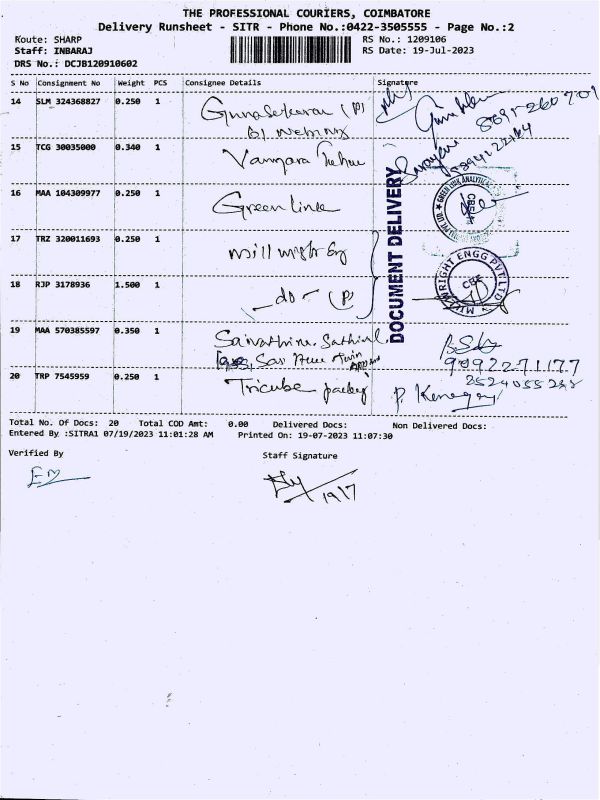 THE PROFESSIONAL COURIERS, COIMBATORE
Delivery Runsheet - SITR - Phone No.:0422-3505555 - Page No.:2
Route: SHARP
RS No.: 1209106
Staff: INBARAJ
RS Date: 19-Jul-2023
DRS No.: DCJB120910602
S No Consignment No Weight PCS Consignee Details Signature
14 SLM 324368827 0.250 1 Gunasekaran (P)
15 TCG 30035000 0.340 1
16 MAA 104309977 0.250 1 Green link
17 TRZ 320011693 0.250 1 Millwright Eng
18 RJP 3178936 1.500 1 - do - (P)
19 MAA 570385597 0.350 1
9092271177
20 TRP 7545959 0.250 1 Tricube
DOCUMENT DELIVERY
MILLWRIGHT ENGG PVT LTD
CBE
Total No. Of Docs: 20 Total COD Amt: 0.00 Delivered Docs: Non Delivered Docs:
Entered By :SITRA1 07/19/2023 11:01:28 AM Printed On: 19-07-2023 11:07:30
Verified By Staff Signature
19/7